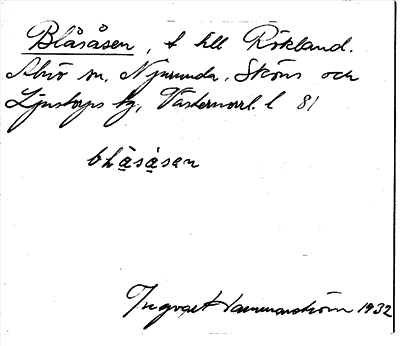 Blåsåsen, t till Rökland.
Alnö sn, Njurunda, Sköns och
Ljustorps tg, Västernorrl. l 81
blåsåsen
Ingvar Hammarström 1932